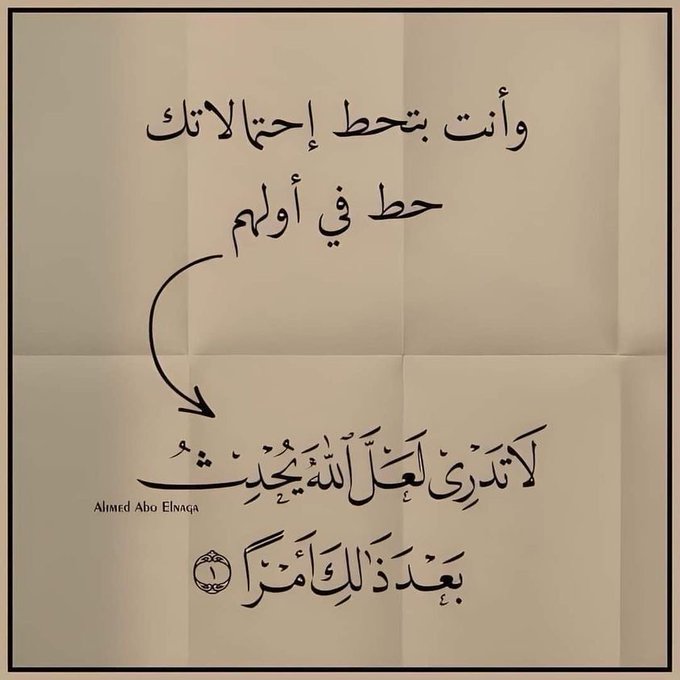 وأنت بتحط إحتمالاتك
حط في أولهم
لَا تَدْرِى لَعَلَّ ٱللَّهَ يُحْدِثُ
Ahmed Abo Elnaga
بَعْدَ ذَٰلِكَ أَمْرًا ١